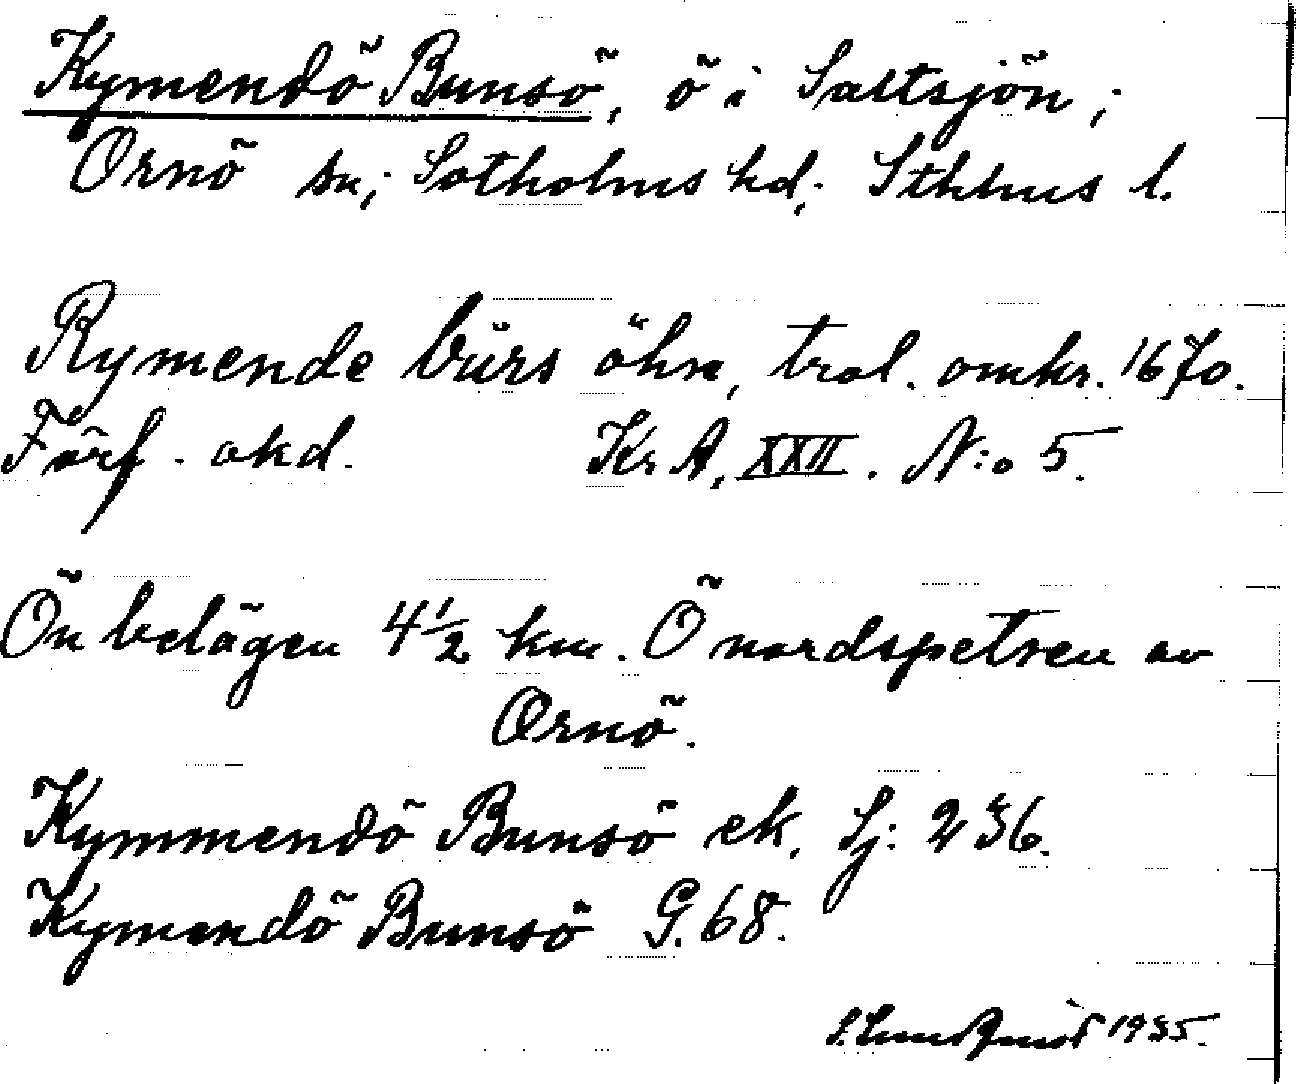 Kymendö Bunsö, ö i Saltsjön;
Ornö sn; Sotholms hd; Sthlms l.
Rymende bürs öhn, trol. omkr. 1670.
Förf. okd. Kr A, XXII. N:o 5.
Ön belägen 4 1/2 km. Ö nordspetsen av
Ornö.
Kymmendö Bunsö ek. Sj: 236.
Kymendö Bunsö G. 68.
S. Lundquist 1935.